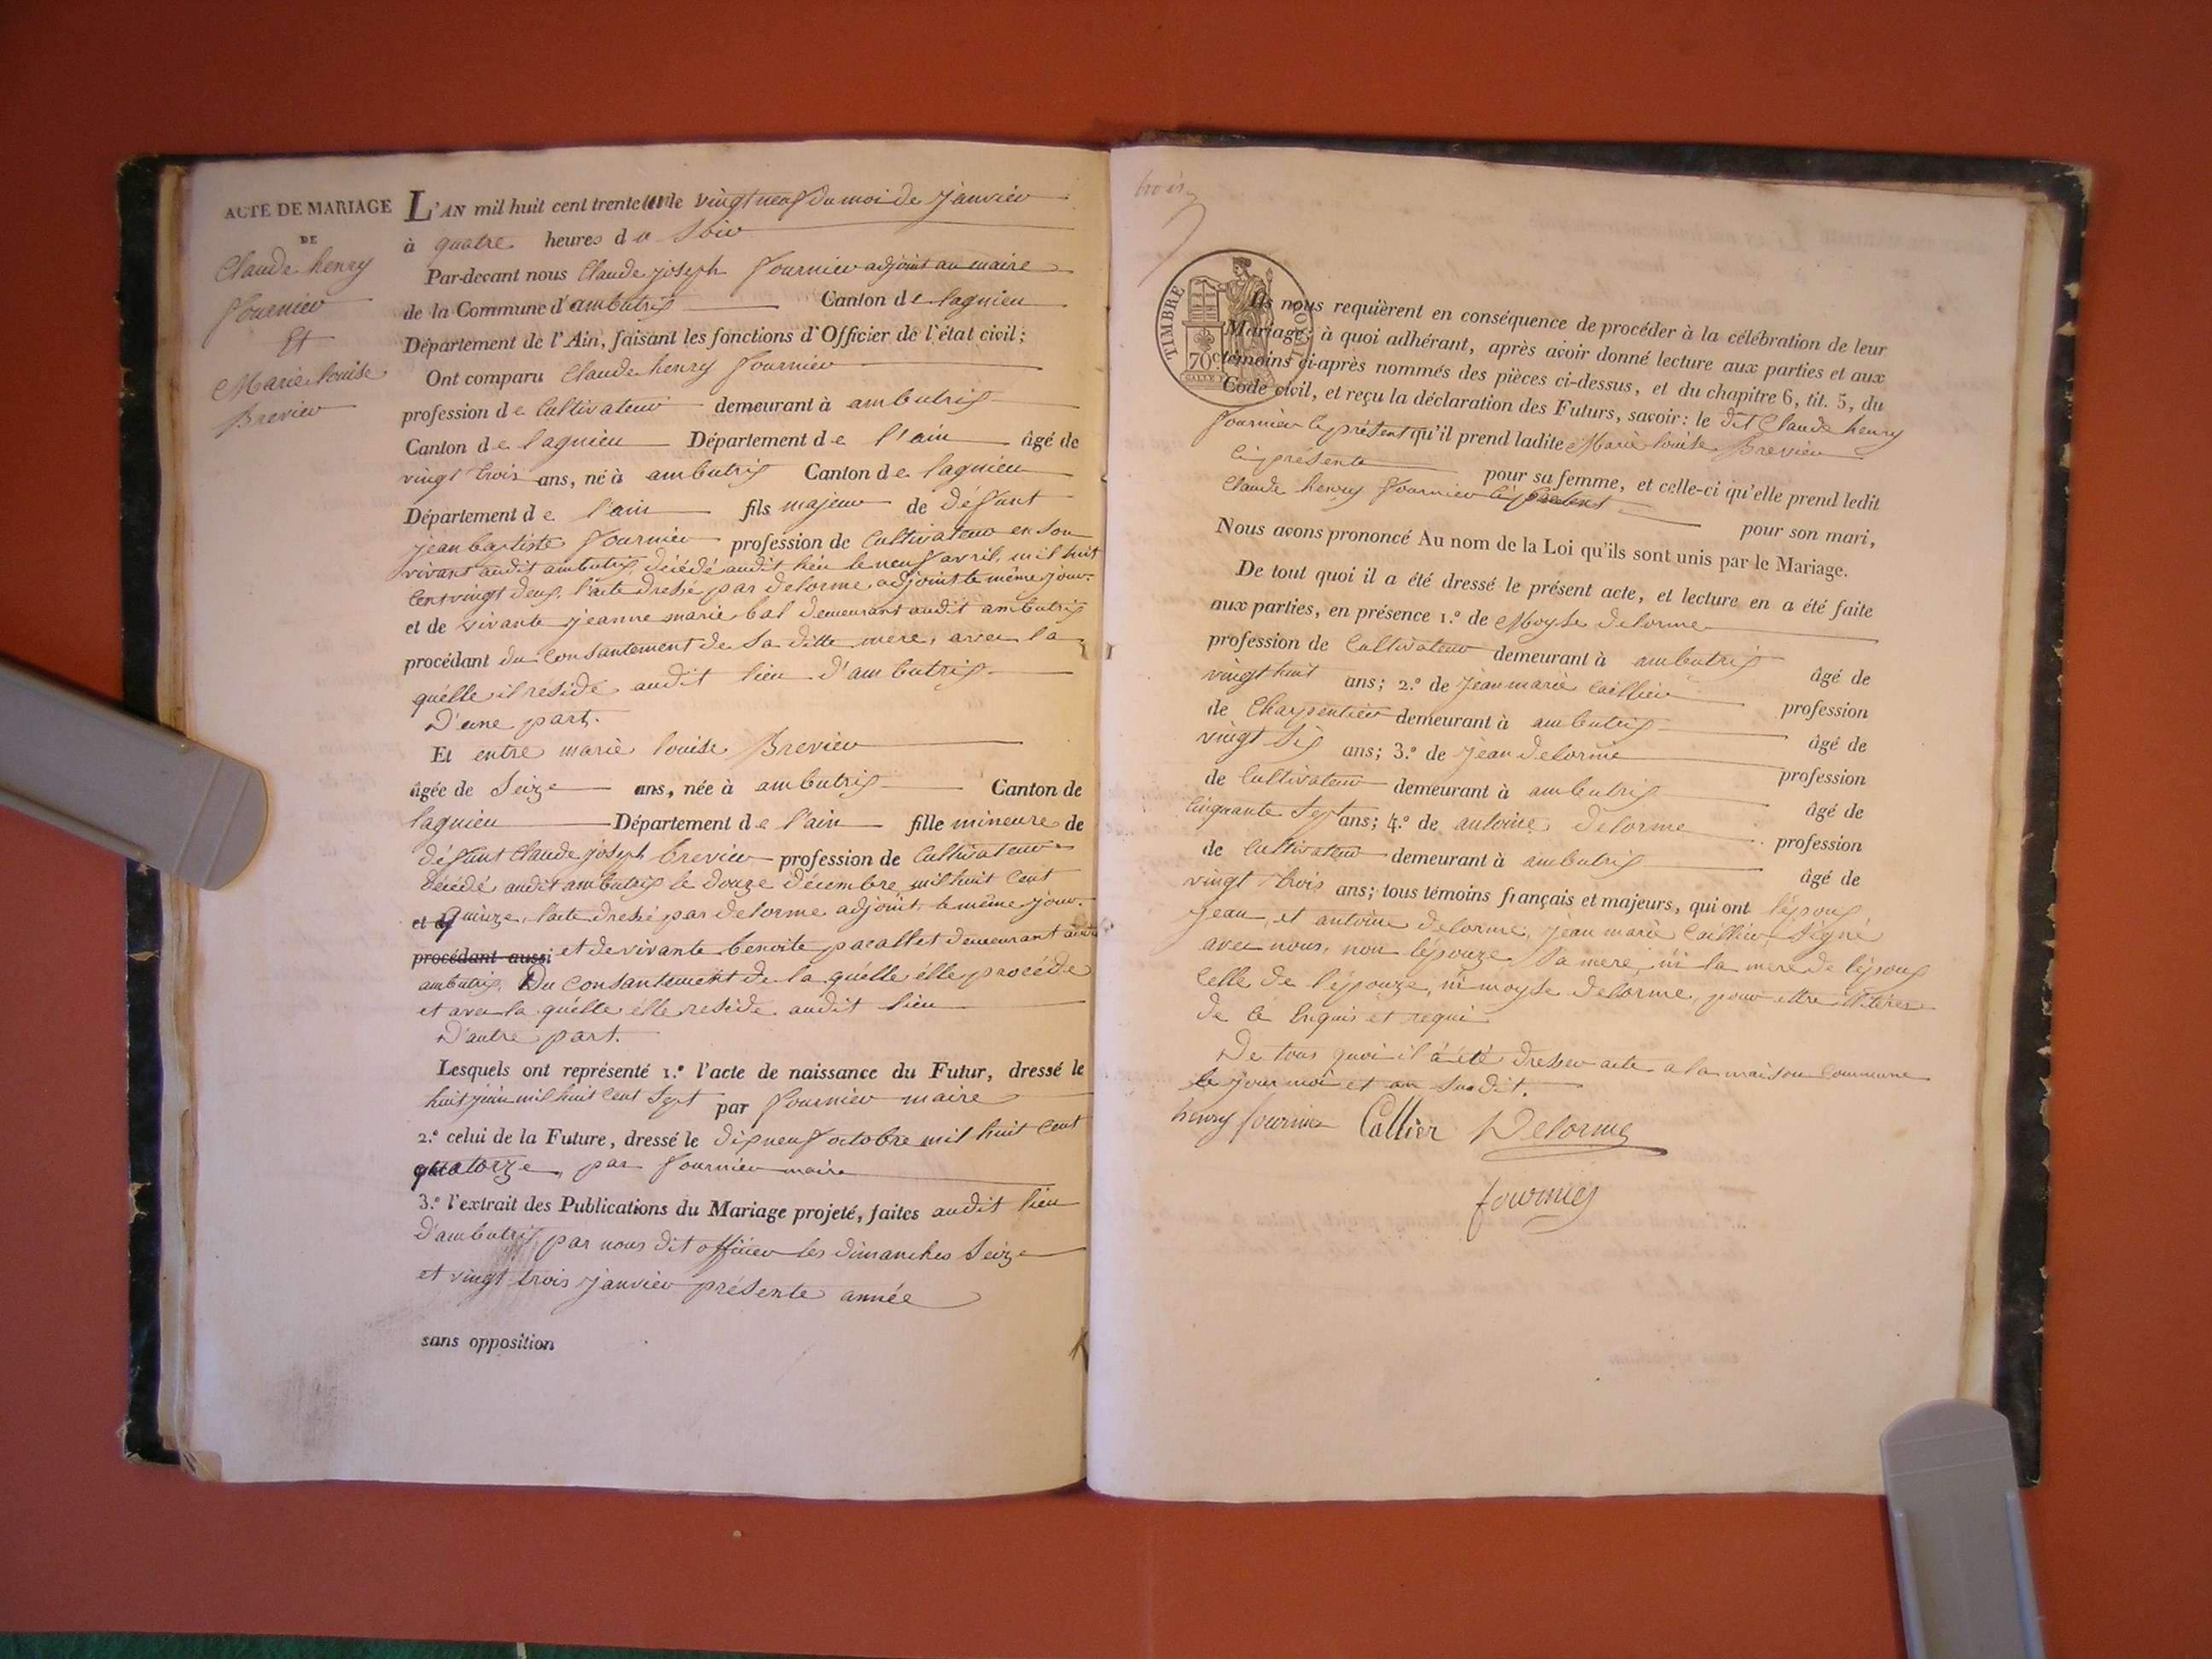 ACTE DE MARIAGE
DE
Claude henry
fournier
Et
Marie louise
Brevier
L'AN mil huit cent trente un le vingt neuf du moi de janvier
à quatre heures du Soir
Par-devant nous Claude joseph fournier adjoint au maire
de la Commune d'ambutrix Canton de lagnieu
Département de l'Ain, faisant les fonctions d'Officier de l'état civil;
Ont comparu Claude henry fournier
profession de Cultivateur demeurant à ambutrix
Canton de lagnieu Département de l'ain âgé de
vingt trois ans, né à ambutrix Canton de lagnieu
Département de l'ain fils majeur de défunt
jean baptiste fournier profession de Cultivateur en Son
vivant audit ambutrix, décédé audit lieu le neuf avril, mil huit
Cent vingt deux, l'acte dressé par delorme adjoint le même jour.
et de vivante jeanne marie bal demeurant audit ambutrix
procédant du Consantement de Sa ditte mère, avec la
quélle il réside audit lieu d'ambutrix
D'une part.
Et entre marie louise Brevier
âgée de Seize ans, née à ambutrix Canton de
lagnieu Département de l'ain fille mineure de
défunt Claude joseph brevier profession de Cultivateur
décédé audit ambutrix le douze décembre mil huit Cent
et d quinze, l'acte dressé par delorme adjoint, le même jour.
procédant aussi et de vivante benoite pacallet demeurant audit
ambutrix. Du Consantement de la quélle élle procéde
et avec la quélle élle reside audit lieu
D'autre part.
Lesquels ont représenté 1.º l'acte de naissance du Futur, dressé le
huit juin mil huit Cent Sept par fournier maire
2.º celui de la Future, dressé le dix neuf octobre mil huit Cent
quatorze, par fournier maire
3.º l'extrait des Publications du Mariage projeté, faites audit lieu
D'ambutrix par nous dit officier les dimanches Seize
et vingt trois janvier présente année
sans opposition
trois
TIMBRE ROYAL
70 c
Ils nous requièrent en conséquence de procéder à la célébration de leur
Mariage; à quoi adhérant, après avoir donné lecture aux parties et aux
témoins ci-après nommés des pièces ci-dessus, et du chapitre 6, tit. 5, du
Code civil, et reçu la déclaration des Futurs, savoir: le dit Claude henry
fournier cy présent qu'il prend ladite Marie louise Brevier
cy présente pour sa femme, et celle-ci qu'elle prend ledit
Claude henry fournier cy présent pour son mari,
Nous avons prononcé Au nom de la Loi qu'ils sont unis par le Mariage.
De tout quoi il a été dressé le présent acte, et lecture en a été faite
aux parties, en présence 1.º de Moyse delorme
profession de Cultivateur demeurant à ambutrix âgé de
vingt huit ans; 2.º de jean marie Caillier profession
de Charpentier demeurant à ambutrix âgé de
vingt Six ans; 3.º de jean delorme profession
de Cultivateur demeurant à ambutrix âgé de
Cinquante Sept ans; 4.º de antoine delorme profession
de Cultivateur demeurant à ambutrix âgé de
vingt trois ans; tous témoins français et majeurs, qui ont l'époux,
jean, et antoine delorme, jean marie Caillier, Signé
avec nous, non l'épouze, Sa mere, ni la mere de l'époux
Celle de l'épouze, ni moyse delorme, pour ettre illiterés
de Ce Enquis et requi
De tous quoi il a été dresser acte a la maison Commune
le jour moi et an Susdit.
henry fournier Callier Delorme
fournier